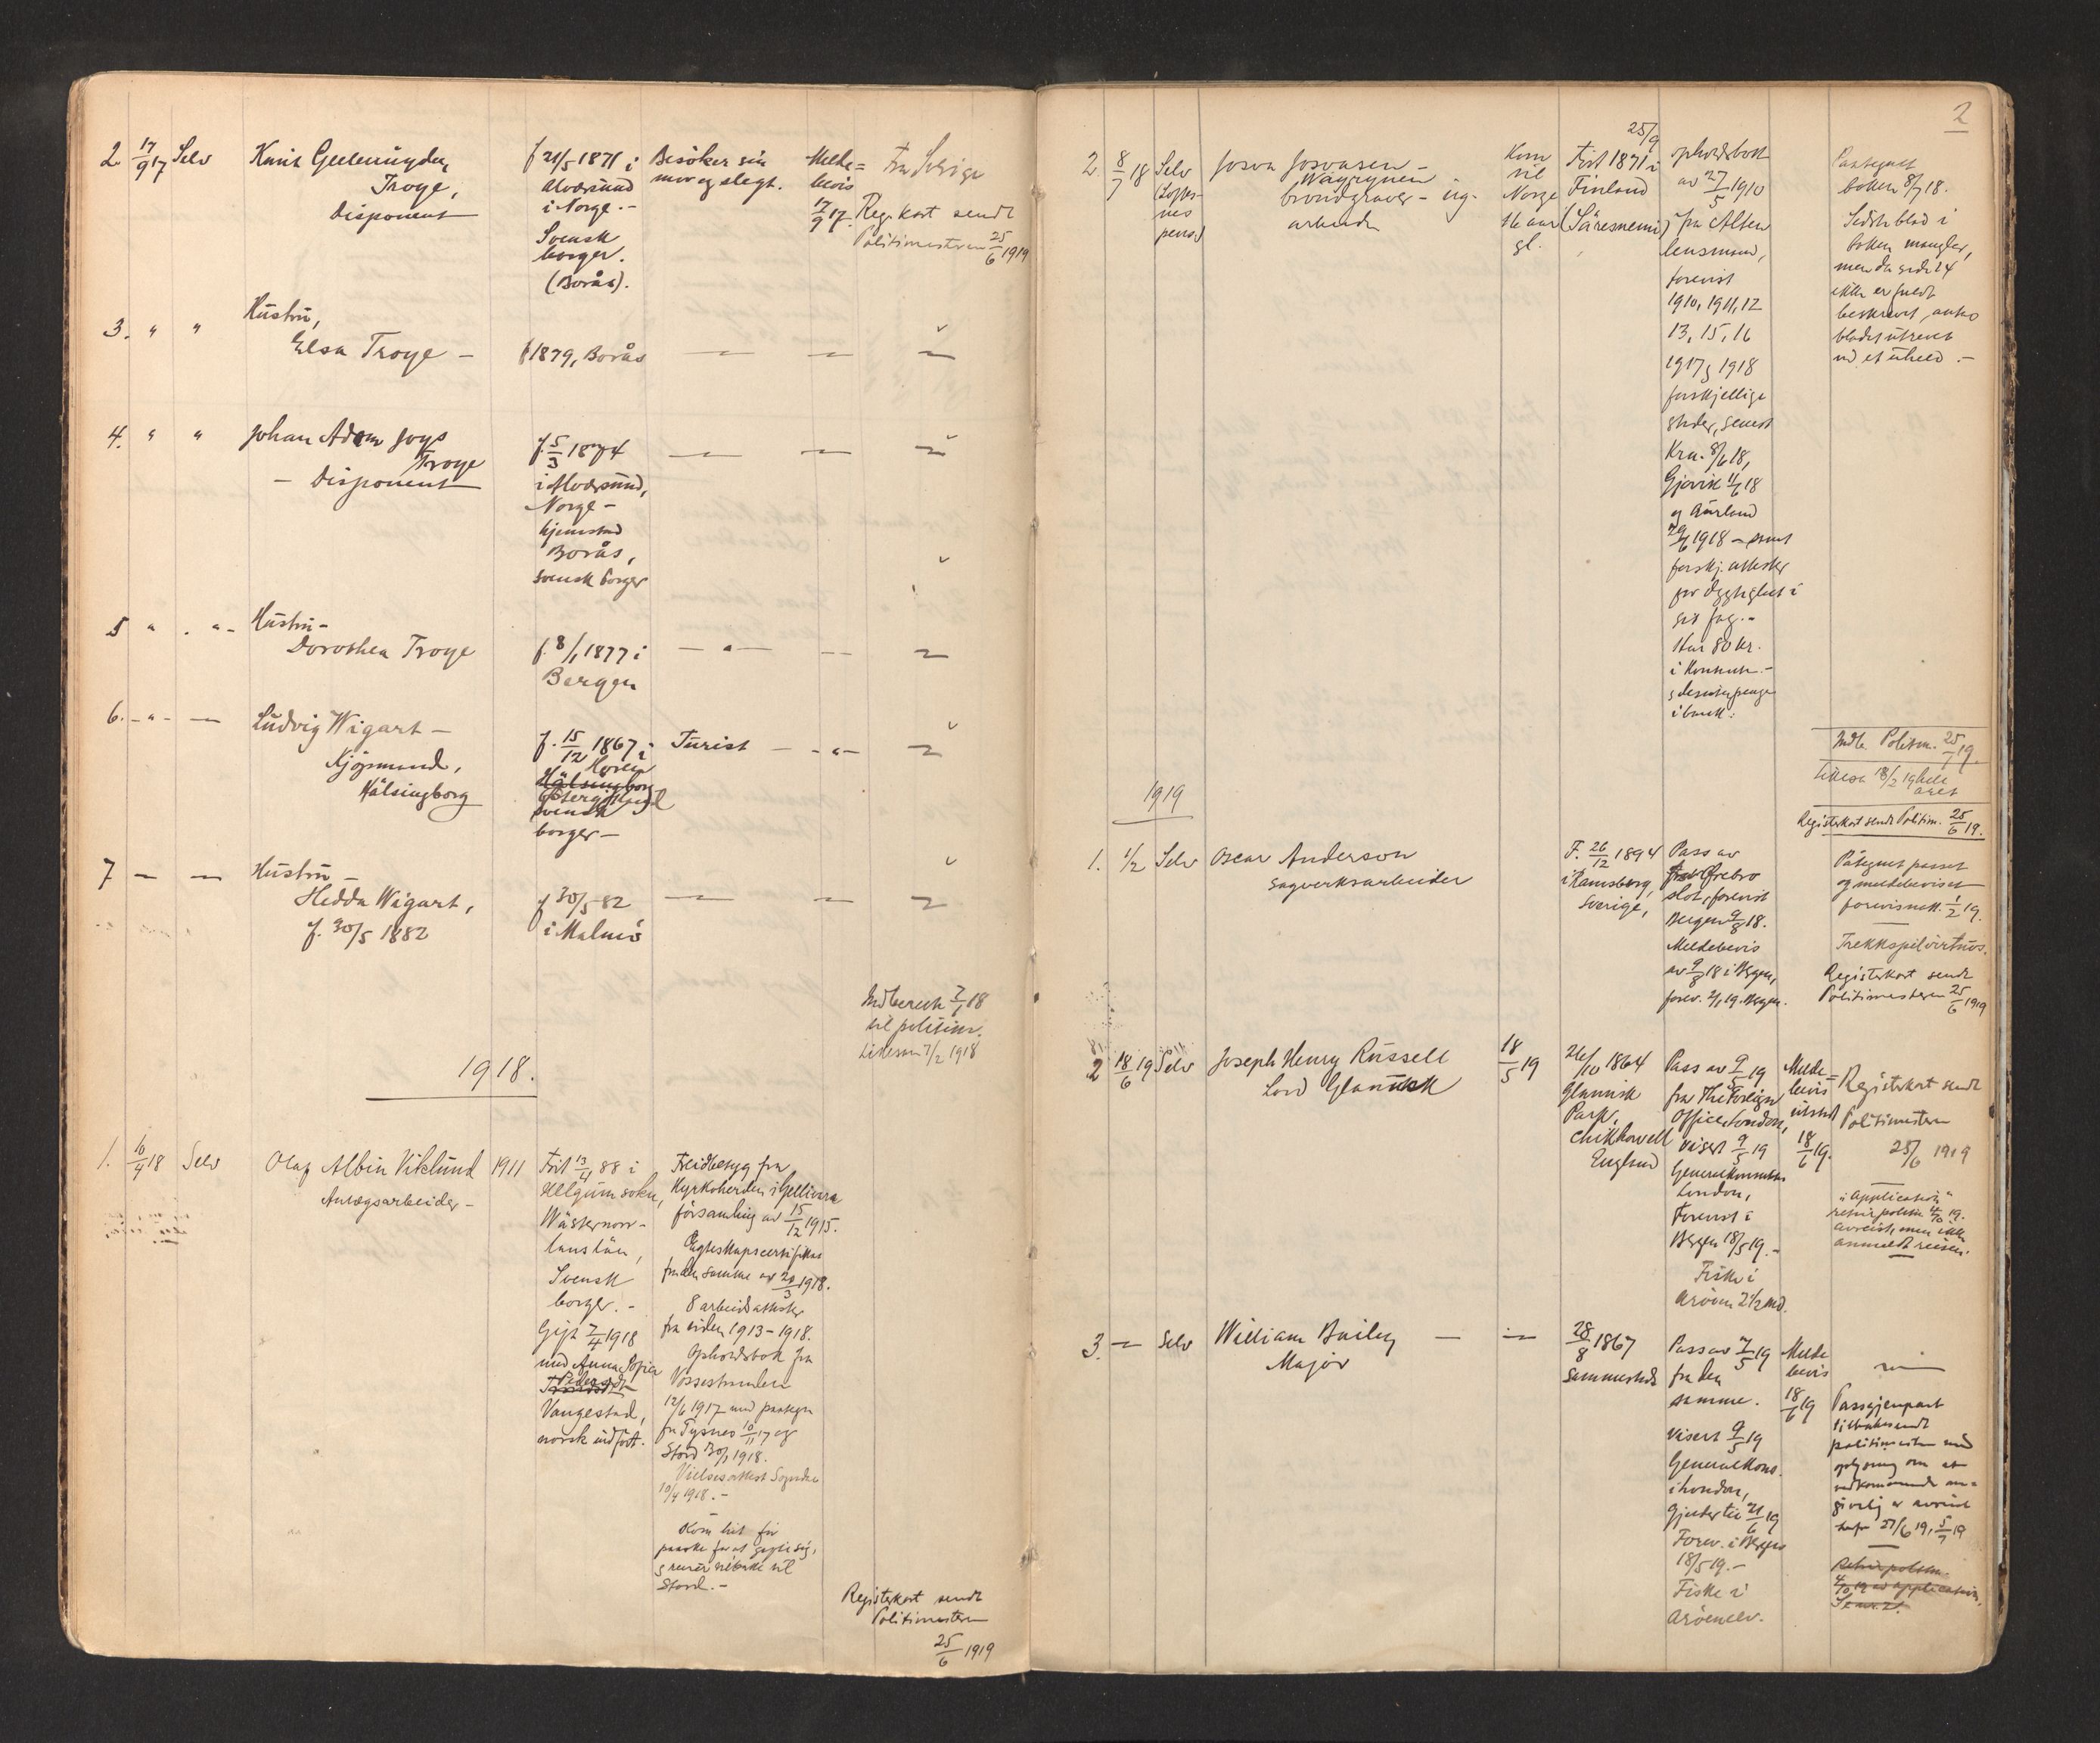 2 17/9 17 Selv
Troye,
Disponent
f 21/5 1871 i
Alversund
i Norge.-
Svensk
borger.
(Borås).
Besöker sin
mor og slegt.
Melde=
bevis
17/9 17.
fra Sverige
Reg. kort sendt
Politimesteren 25/6 1919
3. " "
Hustru,
Elsa Troye -
f 1879, Borås
4. " "
Johan Adam
Troye
- Disponent
f. 5/3 1874
i Alversund,
Norge -
hjemsted
Borås,
svensk borger
5 " "
Hustru-
Dorothea Troye
f. 8/1 1877 i
Bergen
6. - " - —
Ludvig Wigart -
Kjøpmand,
Hälsingborg
f. 15/12 1867 i
Hälsingborg
svensk
borger -
Turist - - " -
7 — —
Hustru -
Hedda Wigart,
f. 30/5 1882
f 30/5 82
i Malmö
Indberettet 7/1 18
til politim.
Likesaa 7/2 1918
1918.
1. 10/4 18 Selv
Olaf Albin Viklund
Anlægsarbeider -
1911
Født 13/4 88 i
Helgum sokn,
Västernorr-
lans län,
Svensk
borger. -
Gift 7/4 1918
med Anna Sofia
Pedersdtr
Vangestad,
norsk indfødt.
Freidbetyg fra
Kyrkoherden i Gellivara
församling av 15/12 1915.
Egteskapscertifikat
fra den samme av 20/3 1918.
8 arbeidsattester
fra tiden 1913-1918.
Opholdsbok fra
Vossestranden
12/6 1917 med paategn.
fra Tysnes 10/11 17 og
Stord 30/1 1918.
Vielsesattest Sogndal
10/4 1918. -
Kom hit før
paaske for at gifte sig,
Stord. -
Registerkort sendt
Politimesteren
25/6 1919
2
2. 8/7 18 Selv
Josva Josvasen -
Wäyrynen
brøndgraver -
arbeider
Kom
til
Norge
16 aar
gl.
25/9
Født 1871 i
Finland
opholdsbok
av 27/5 1910
fra Alten
lensmand,
forevist
1910, 1911, 12
13, 15, 16
1917 & 1918
forskjellige
steder, senest
Kra. 8/6 18,
Gjøvik 11/6 18
og Aurland
1918 - samt
forskj. attester
for dygtighet i
sit fag. -
Har 80 kr.
i kontanter. -
i bank.
Paategnet
boken 8/7 18.
Sidste blad i
boken mangler,
men da side 24
ikke er fuldt
beskrevet, antas
bladet utrevet
ved et uheld. -
Indb. Politm. 25/7 19.
Likesaa 18/2 19 hele
aaret
Registerkort sendt Politim. 25/6 19.
1919
1. 1/2 Selv
Oscar Anderson
sagverksarbeider
F. 26/12 1894
i Ramsberg,
Sverige,
Pass av
Ørebro
slot, forevist
Bergen 9/8 18.
Meldebevis
av 9/8 18 i Bergen,
forev. 2/1 19. Bergen.
Påtegnet passet
og meldebeviset
forevisnatt. 1/2 19.
Trekkspilvirtuos.
Registerkort sendt
Politimesteren 25/6 1919
2 18/6 19 Selv
Joseph Henry Russell
Lord Glanusk
18/5 19
26/10 1864
Glanusk
Park,
Chikhowell
England
Pass av 9/5 19
fra The Foreign
Office, London,
Visert 9/5 19
Generalkonsulen
London,
Forevist i
Bergen 18/5 19. -
Fiske i
Årøien 2 1/2 md.
Melde=
bevis
utstedt
18/6 19.
Registerkort sendt
Politimesteren
25/6 1919
"Application"
retur politm 4/10 19.
avreist, men ikke
anmeldt reisen.
3. — Selv
William Bailey
Major
28/8 1867
Pass av 7/5 19
fra den
samme.
Visert 9/5 19
Generalkons.
i London,
Gjelder til 21/6 19
Forev. i Bergen
18/5 19. -
Fiske i
Årøenelv.
Melde
bevis
18/6 19
Passgjenpart
tilbakesendt
politimesteren med
oplysning om at
vedkommende an=
givelig er avreist
27/6 19, 5/7 19
Retur politm.
4/10 19 av application,
Se nr. 2.